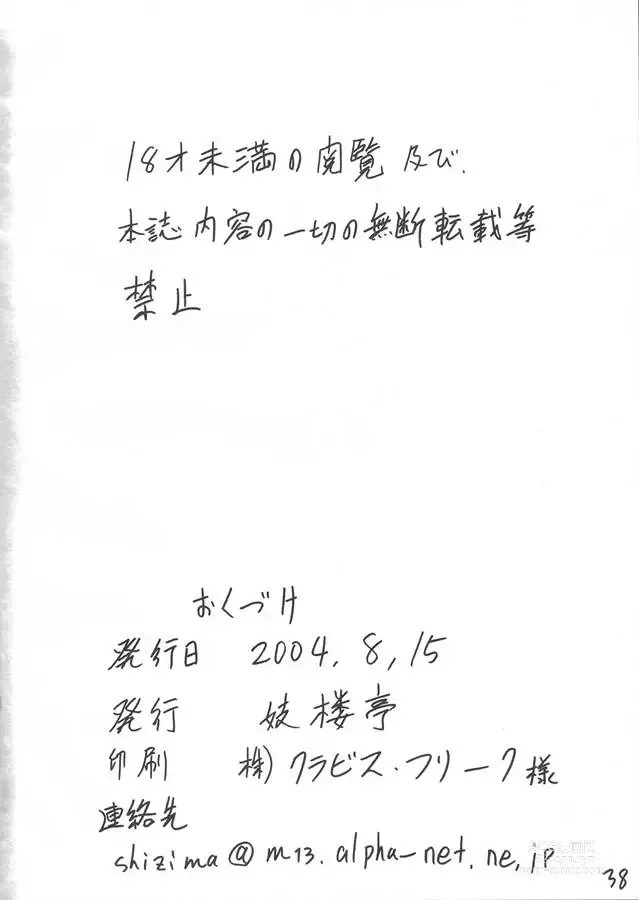 18才未満の閲覧 及び.
本誌 内容の一切の無断転載等
禁止
おくづけ
発行日 2004. 8, 15
発行 妓楼亭
印刷 株) クラビス・フリーク様
連絡先
shizima@m13.alpha-net.ne.jp
38